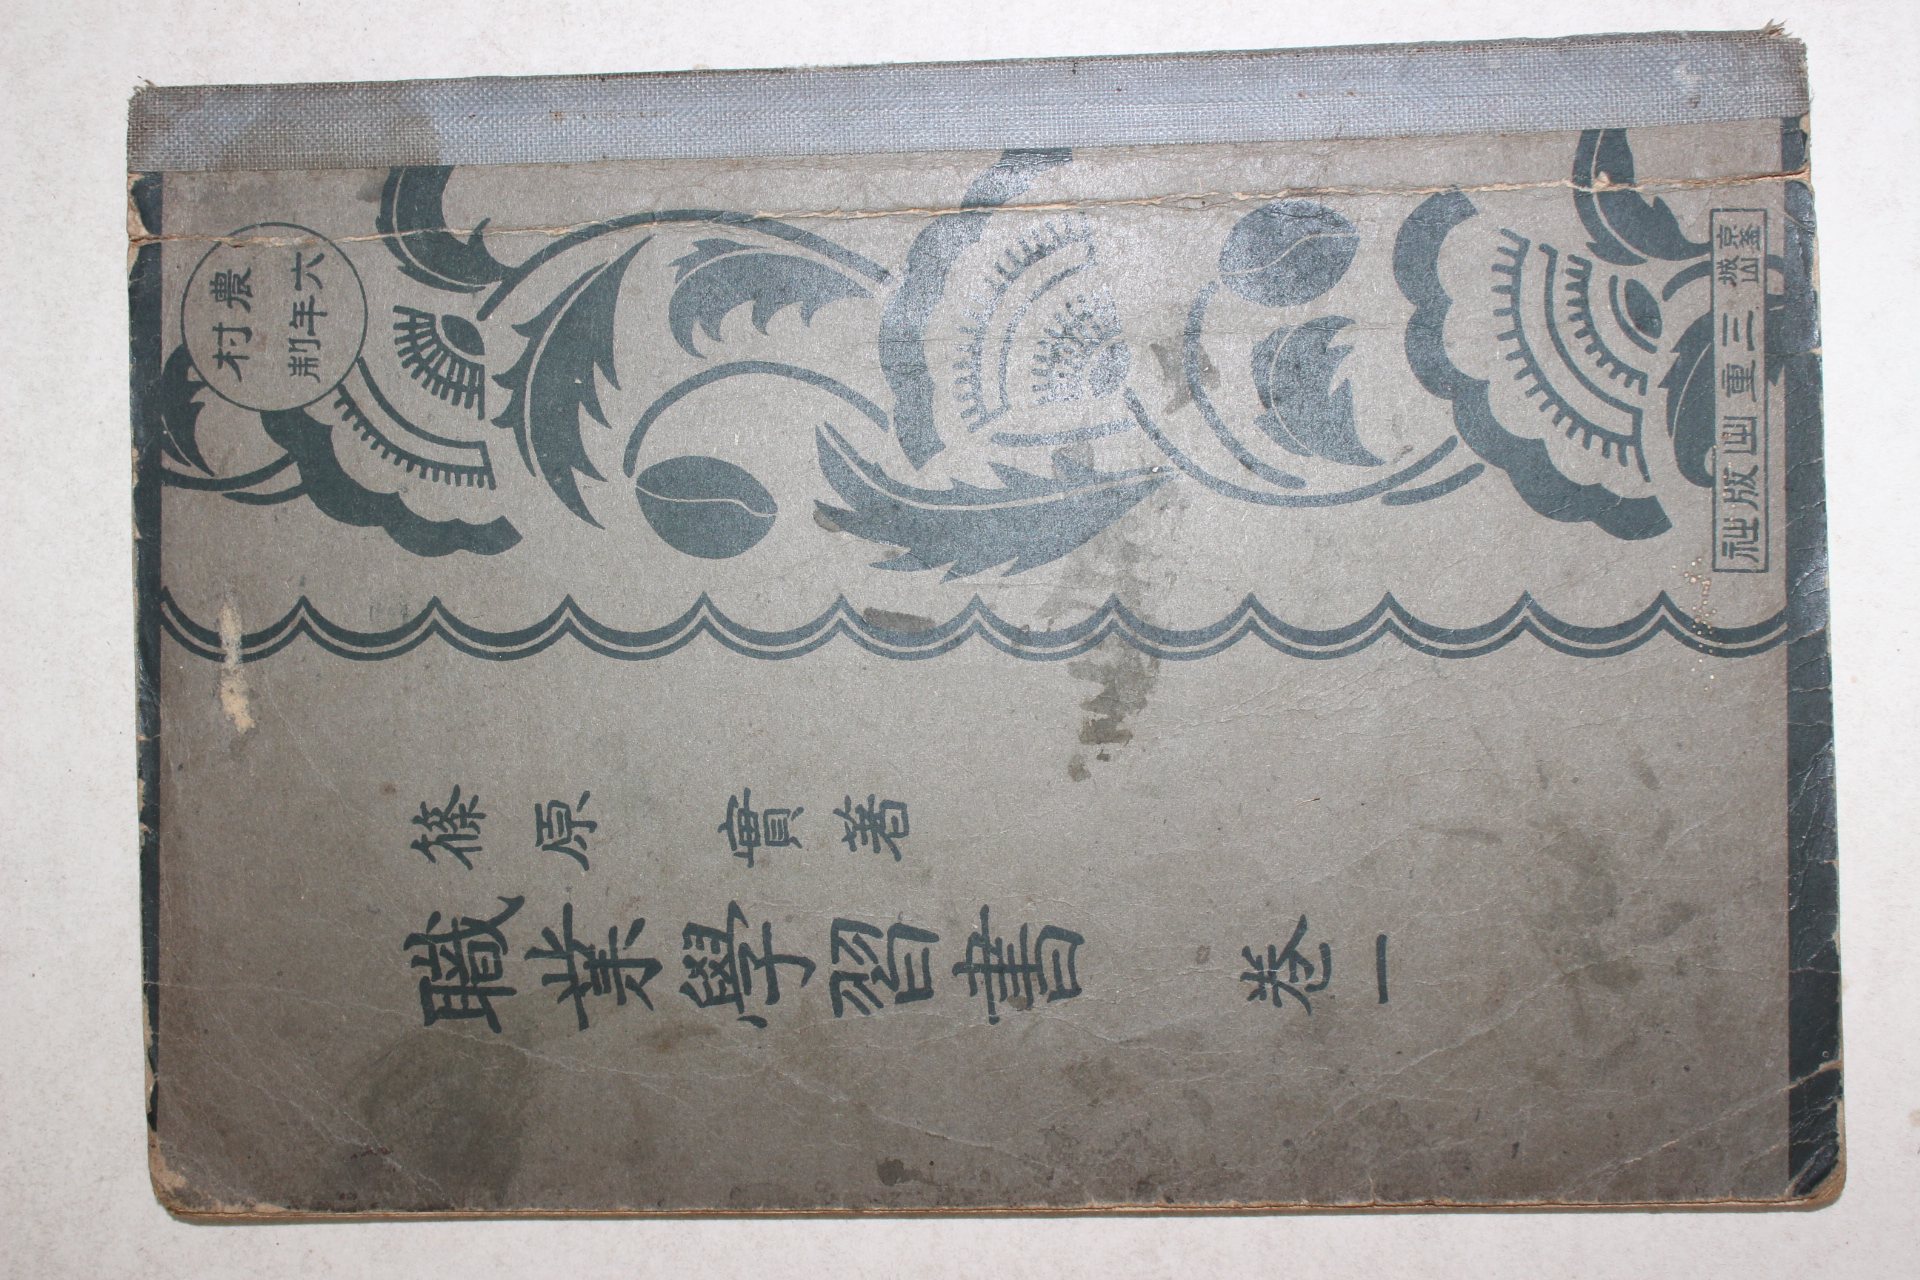 農村
六年制
篠原實著
職業學習書 卷一
京城
釜山
三重出版社